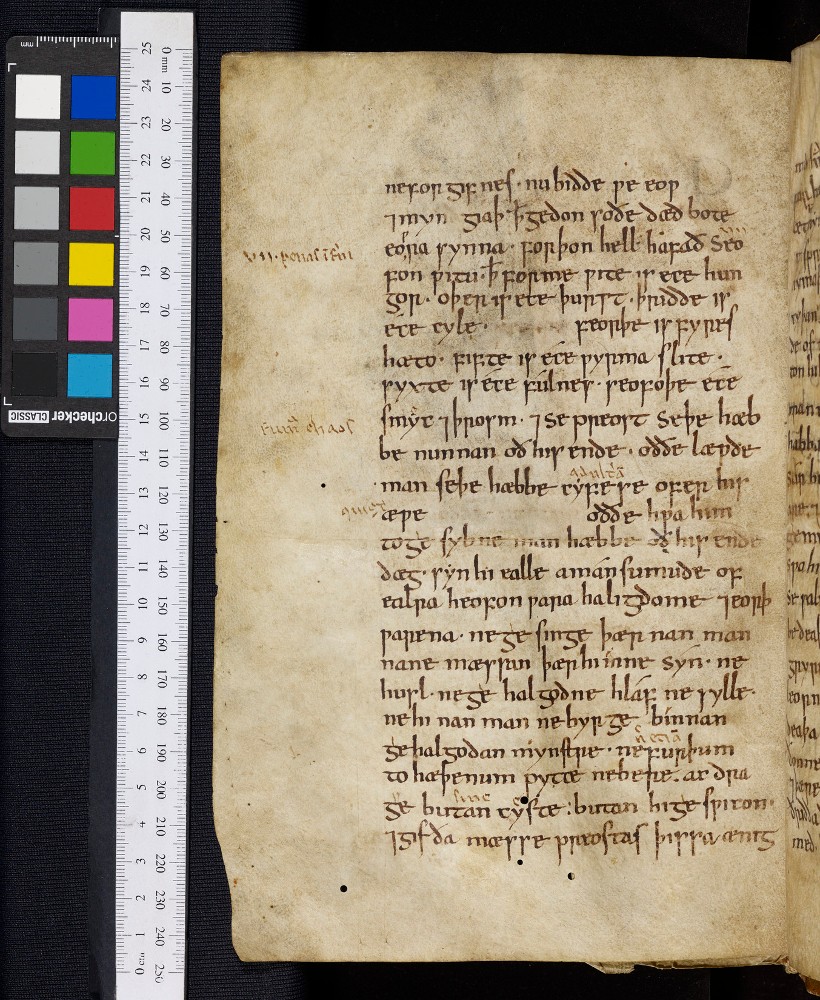 neforgifnes· nu bidde ƿe eoƿ
⁊ myngiaþ ꝥ ge don soðe dædbote
eoƿra synna· forþon hell hafað seo
fon ƿitu· ꝥ forme ƿite is ece hun
gor· oþer is ece þurst· þridde is
ece cyle· feorþe is fyres
hæto· fifte is ece ƿyrma slite·
syxte is éce fúlnes· seofoþe ece
smyc ⁊ þrosm· ⁊ se preost seþe hæb
be nunnan oð his ende· oððe læƿde
man seþe hæbbe cyfese ofer his
æƿe oððe hƿa him
to gesybne man hæbbe oð his ende
dæg· syn hi ealle amánsumude of
ealra heofonƿara haligdome ⁊ eorþ
ƿarena· ne gesinge þær nan man
nane mæssan þær hi inne syn· ne
husl· ne gehalgodne hláf ne sylle·
ne hi nan man ne byrge binnan
gehalgodan mynstre· ne furþum
to hæþenum pytte ne bere· ac dra
ge butan cyste: butan hi gesƿicon·
⁊ gif ða mæssepreostas þissa ænig